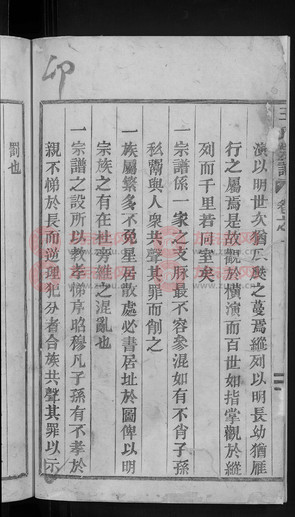 演以明世次猶瓜瓞之蔓焉縱列以明長幼猶雁
行之屬焉是故觀於橫演而百世如指掌觀於縱
列而千里若同室矣
一宗譜係一家之支脈最不容參混如有不肖子孫
私鬻與人衆共聲其罪而削之
一族屬繁多不免星居散處必書居址於圖俾以明
宗族之有在杜旁維之混亂也
一宗譜之設所以教孝悌序昭穆凡子孫有不孝於
親不悌於長而逆理犯分者合族共聲其罪以示
罰也
印